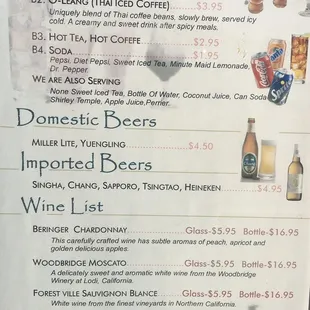 B2. O-Leang (Thai Iced Coffee)............$3.95
Uniquely blend of Thai coffee beans, slowly brew, served icy
cold. A creamy and sweet drink after spicy meals.
B3. Hot Tea, Hot Coffefe.............$2.95
B4. Soda.............$1.95
Pepsi, Diet Pepsi, Sweet Iced Tea, Minute Maid Lemonade,
Dr. Pepper.
We are Also Serving
None Sweet Iced Tea, Bottle Of Water, Coconut Juice, Can Soda
Shirley Temple, Apple Juice,Perrier.
Domestic Beers
Miller Lite, Yuengling.............$4.50
Imported Beers
Singha, Chang, Sapporo, Tsingtao, Heineken.........$4.95
Wine List
Beringer Chardonnay.............Glass-$5.95 Bottle-$16.95
This carefully crafted wine has subtle aromas of peach, apricot and
golden delicious apples.
Woodbridge Moscato.............Glass-$5.95 Bottle-$16.95
A delicately sweet and aromatic white wine from the Woodbridge
Winery at Lodi, California.
Forest ville Sauvignon Blance......Glass-$5.95 Bottle-$16.95
White wine from the finest vineyards in Northern California.